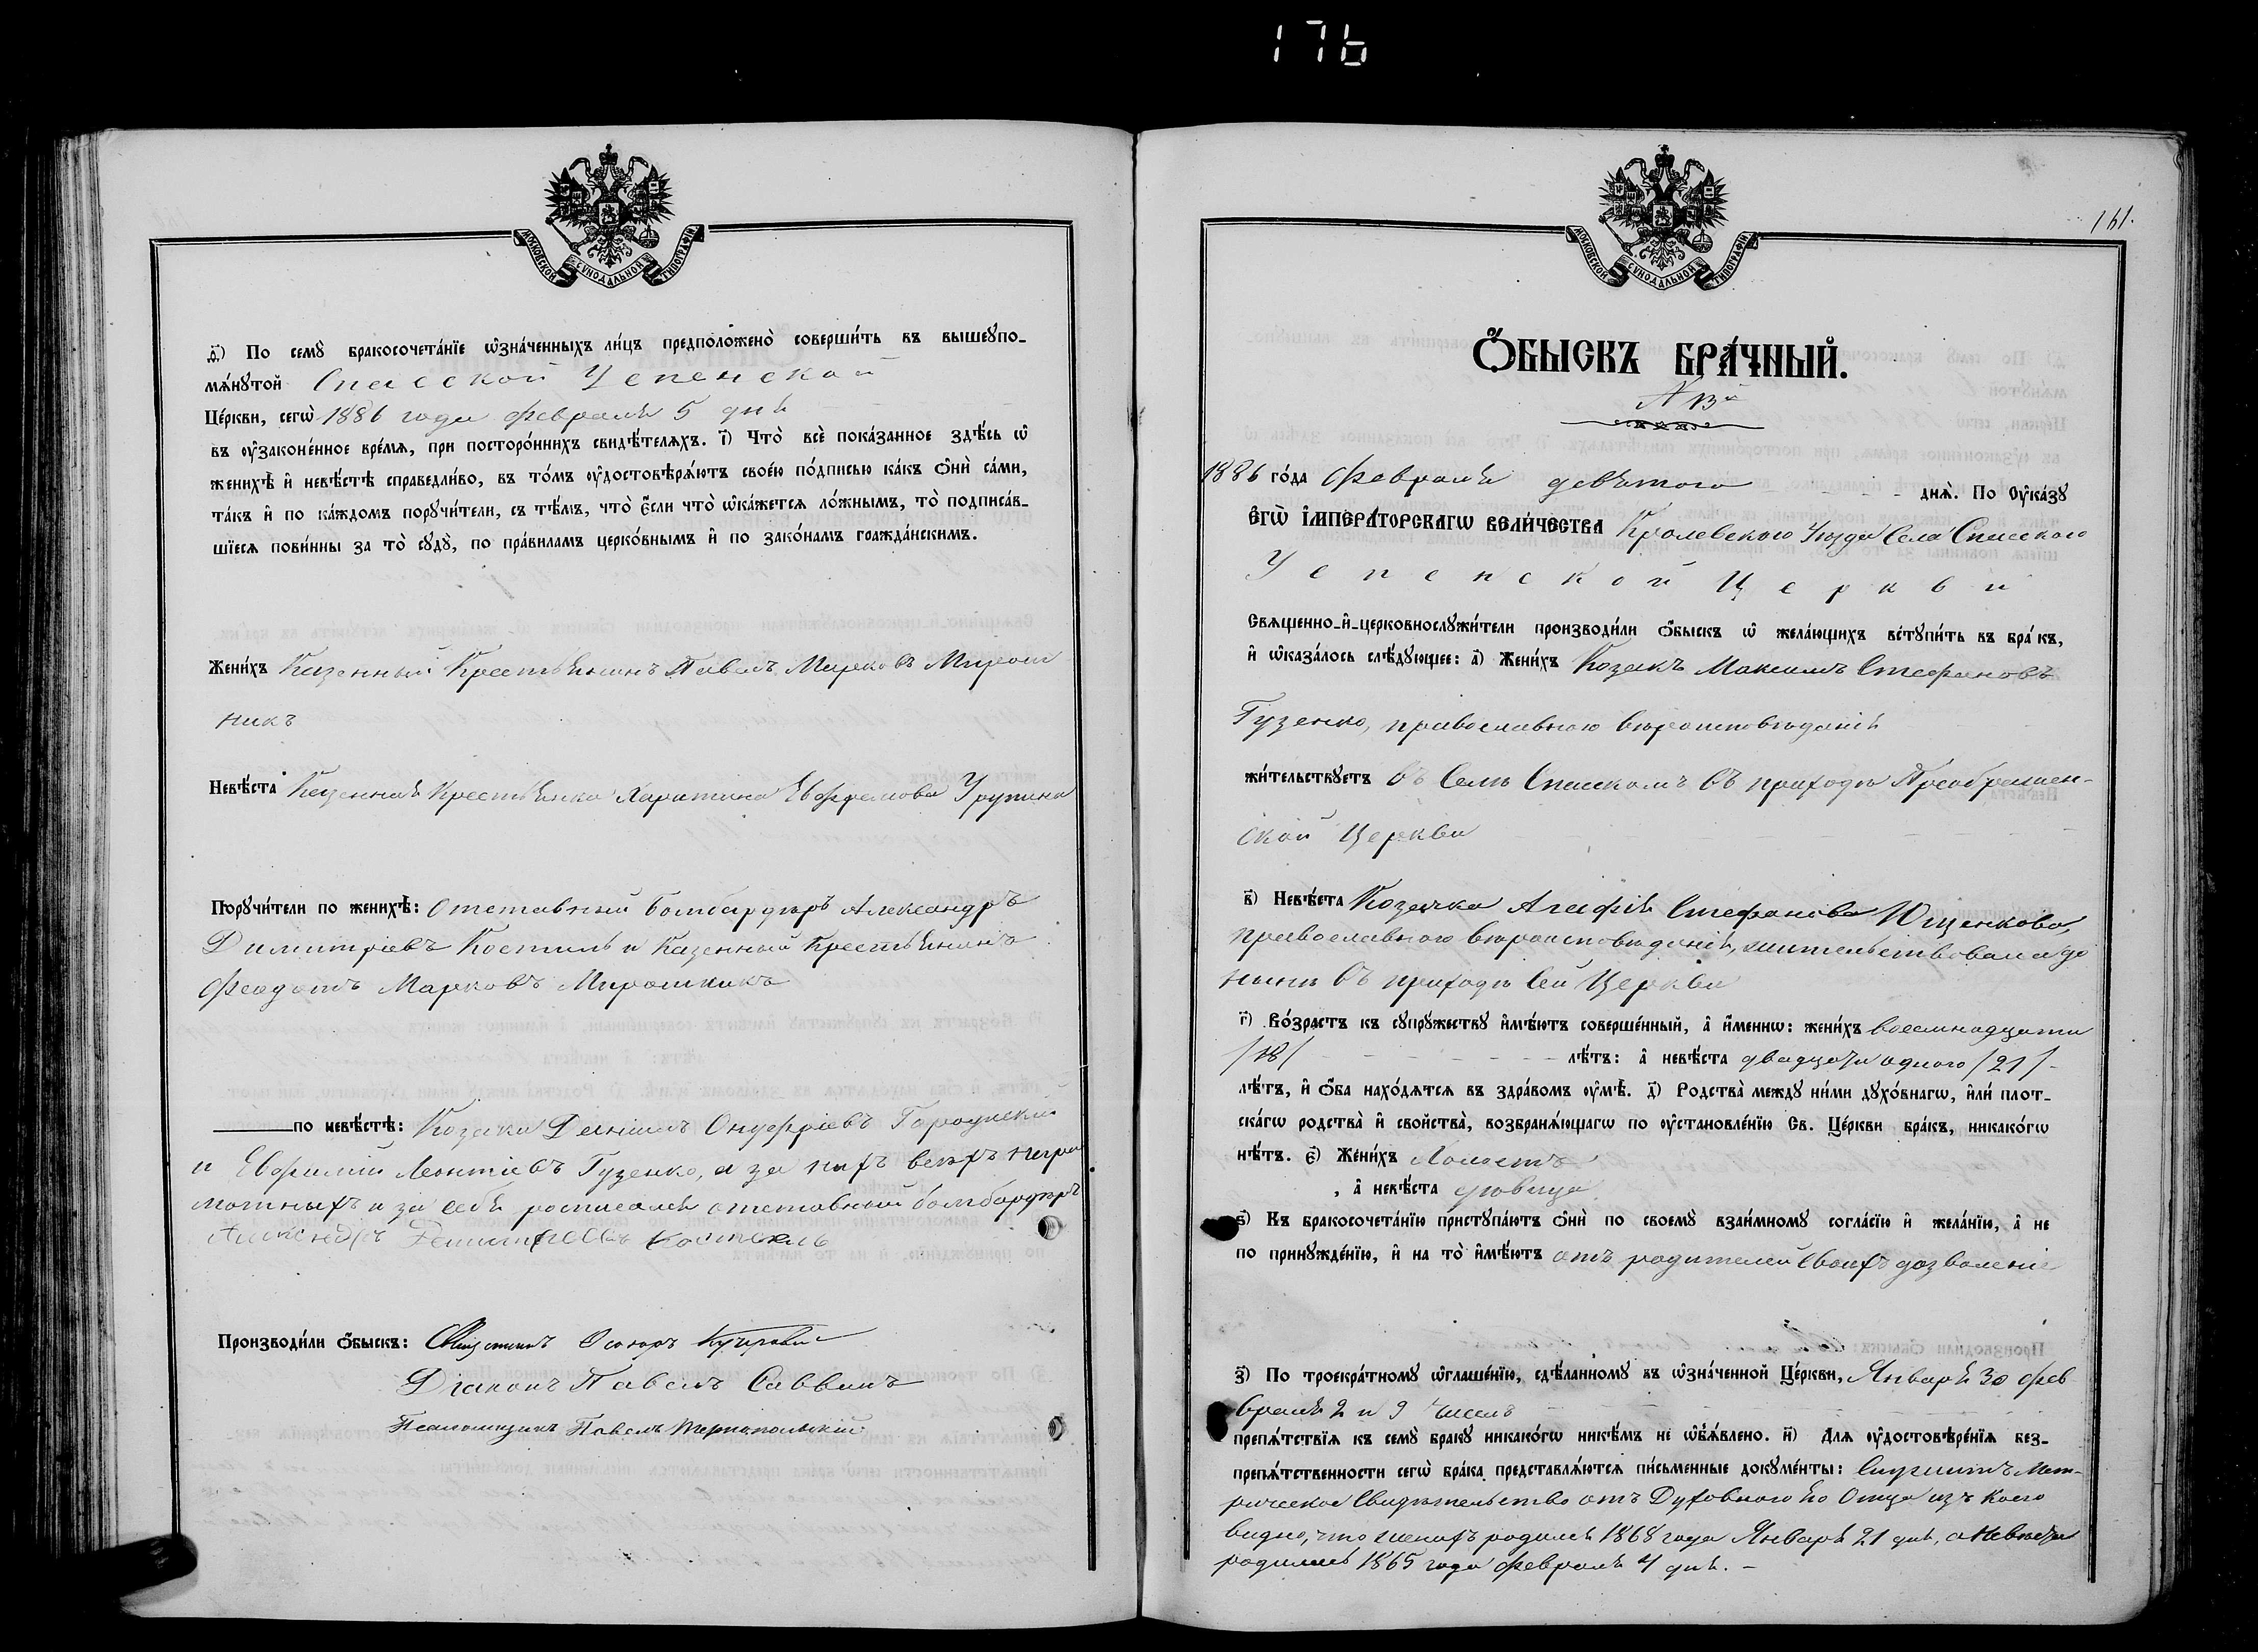 176
МОСКОВСКОЙ СѴНОДАЛЬНОЙ ТИПОГРАФІИ
д҃і) По семꙋ̀ бракосочета́нїе ѡ҆зна́ченныхъ ли́цъ предположено̀ соверши́ть въ вышеꙋпо-
мѧ́нꙋтой Спасской Успенской
Це́ркви, сегѡ̀ 1886 года февраля 5 дня
въ ᲂу҆зако́ненное вре́мѧ, при посторо́ннихъ свидѣ́телѧхъ. і҃) Что̀ всѐ пока́занное здѣ́сь ѡ҆
женихѣ̀ и҆ невѣ́стѣ справедли́во, въ то́мъ ᲂу҆достовѣрѧ́ютъ свое́ю по́дписью ка́къ ѻ҆нѝ са́ми,
та́къ и҆ по ка́ждомъ порꙋчи́тели, съ тѣ́мъ, что̀ є҆́сли что̀ ѡ҆ка́жетсѧ ло́жнымъ, то̀ подписа́в-
шїесѧ пови́нны за то̀ сꙋдꙋ̀, по пра́виламъ церко́внымъ и҆ по зако́намъ гражда́нскимъ.
Жени́хъ Казенный Крестьянинъ Павелъ Марковъ Мирош
никъ
Невѣ́ста Казенная Крестьянка Харитина Евфремова
Порꙋчи́тели по женихѣ̀: Отставный бомбардиръ Александръ
Димитріевъ Костиль и Казенный Крестьянинъ
Феодотъ Марковъ Мирошникъ
по невѣ́стѣ: Козаки Даніилъ Онуфріевъ
и Евфимій Леонтіевъ Гузенко, а за нихъ всѣхъ негра
мотныхъ и за себя росписался отставный бомбардиръ
Александръ Димитріевъ Костиль
Производи́ли ѻ҆́быскъ: Священникъ
Діаконъ Павелъ Саввинъ
Псаломщикъ Павелъ Тернопольскій
161.
МОСКОВСКОЙ СѴНОДАЛЬНОЙ ТИПОГРАФІИ
Ѻ҆́БЫСКЪ БРА́ЧНЫЙ.
1886 го́да февраля девятого днѧ̀. По Оу҆ка́зꙋ
Є҆ГѠ̀ І҆МПЕРА́ТОРСКАГѠ ВЕЛИ́ЧЕСТВА Кролевского Уѣзда Села Спасского
Успенской Церкви
Свѧще́нно-и҆-церковнослꙋжи́тели производи́ли ѻ҆́быскъ ѡ҆ жела́ющихъ встꙋпи́ть въ бра́къ,
и҆ ѡ҆каза́лось слѣ́дꙋющее: а҃) Жени́хъ Козакъ Максимъ Стефановъ
Гузенко, православного вѣроисповѣданія
жи́тельствꙋетъ въ Селѣ Спасскомъ въ приходѣ Преображен-
ской Церкви
в҃) Невѣ́ста Козачка Агафія Стефанова Ющенкова,
православного вѣроисповѣданія, жительствовала до
нынѣ въ приходѣ сей Церкви
г҃) Во́зрастъ къ сꙋпрꙋ́жествꙋ и҆мѣ́ютъ соверше́нный, а҆ и҆́меннѡ: жени́хъ восемнадцати
/18/ лѣ́тъ: а҆ невѣ́ста двадцати одного /21/
лѣ́тъ, и҆ ѻ҆́ба нахо́дѧтсѧ въ здра́вомъ ᲂу҆мѣ̀. д҃) Родства̀ междꙋ ни́ми дꙋхо́внагѡ, и҆лѝ плот-
ска́гѡ родства̀ и҆ свойства̀, возбранѧ́ющагѡ по ᲂу҆становле́нїю Св. Це́ркви бра́къ, никако́гѡ
нѣ́тъ. є҃) Жени́хъ Холостъ
, а҆ невѣ́ста дѣвица
ѕ҃) Къ бракосочета́нїю пристꙋпа́ютъ ѻ҆нѝ по своемꙋ̀ взаи́мномꙋ согла́сїю и҆ жела́нїю, а҆ не
по принꙋжде́нїю, и҆ на то̀ и҆мѣ́ютъ отъ родителей своихъ дозволеніе
з҃) По троекра́тномꙋ ѡ҆глаше́нїю, сдѣ́ланномꙋ въ ѡ҆зна́ченной Це́ркви, Января 30 фев
враля 2 и 9 числъ
препѧ́тствїѧ къ семꙋ̀ бра́кꙋ никако́гѡ никѣ́мъ не ѡ҆б̾ѧ́влено. и҃) Длѧ ᲂу҆достовѣре́нїѧ без-
препѧ́тственности сегѡ̀ бра́ка представлѧ́ютсѧ пи́сьменные докꙋме́нты: Служитъ Мет-
рическое Свидѣтельство отъ Духовного Его Отца изъ коего
видно, что женихъ родился 1868 года Января 21 дня, а Невѣста
родилась 1865 года февраля 4 дня. -